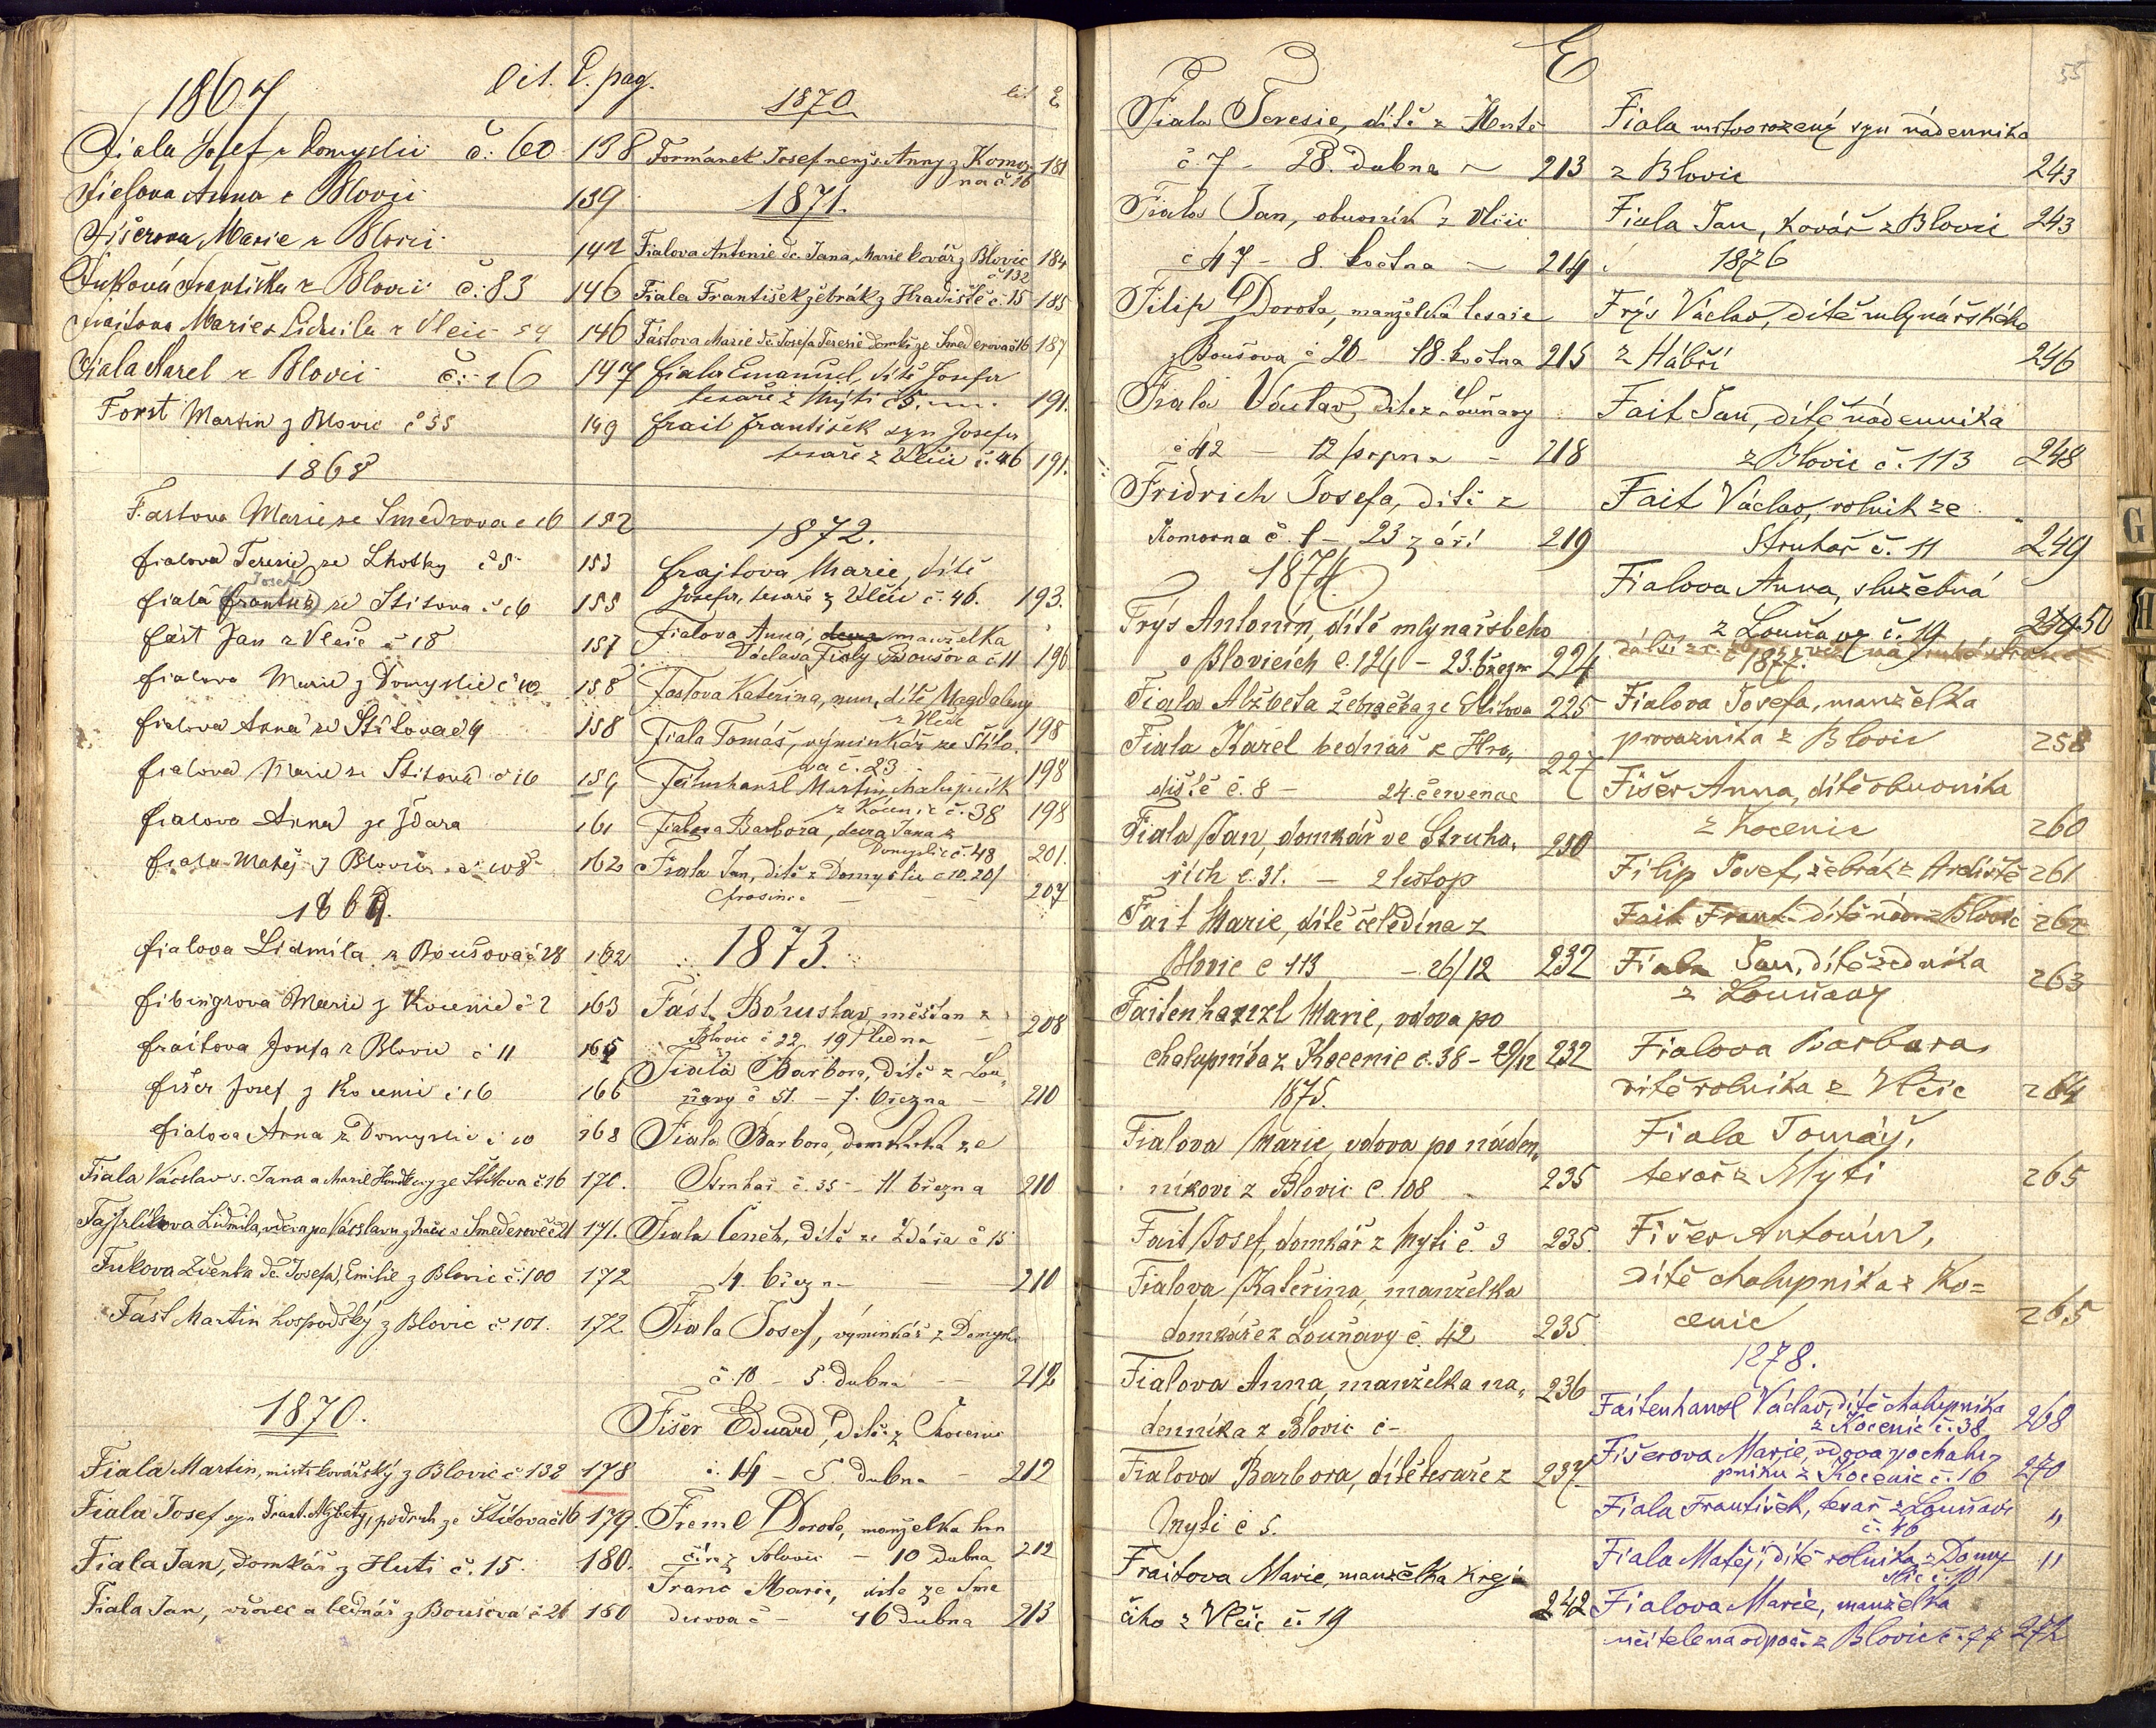 1867 lit. E. pag.
Fiala Josef z Domyslic č: 60 138
Fialova Anna z Blovic 139
Fišerova Marie z Blovic 142
Fuková Františka z Blovic č: 83 146
Marie Lidmila z Vlčic 54 146
Fiala Karel z Blovic č: 16 147
Forst Martin z Blovic č 55 149
1868
Fastova Marie ze Smedrova č 16 152
fialova Teresie ze Lhotky č 5 153
Josef
fiala frantisk ze Stitova č 16 155
fást Jan z Vlčic č 18 157
fialova Marie z Domyslic č 10 158
fialova Anna ze Štitova č 9 158
fialova Marie ze Stitova č 16 159
fialova Anna ze Ždara 161
fiala Matěj z Blovic č 108 162
1869.
fialova Lidmila z Boušova č 28 162
fibingrova Marie z Kocenic č 2 163
fraitova Josefa z Blovic č 11 165
fišer Josef z Kocenic č 16 166
fialova Anna z Domyslic č 10 168
Fiala Václav s. Jana a Marie ze Štitova č. 16 170.
Lidmila, vdova po Václavu z Smederově č 21 171.
Fukova Zdenka dc. Josefa, Emilie z Blovic č. 100 172
Fást Martin hospodský z Blovic č. 101. 172.
1870.
Fiala Martin, mistr kovářský z Blovic č 132 178
Fiala Josef syn Frant. Alžběty, podruh ze Štítova č 16 179.
Fiala Jan, domkář z Huti č. 15. 180.
Fiala Jan, vdovec a bednář z Boušova č 26 180
1870 lit E
Formánek Josef nenj s. Anny z Komor 181
na č. 16
1871.
Fialova Antonie dc. Jana, Marie kovář z Blovic 184
č 132
Fiala František žebrák z Hradiště č. 15 185
Fástova Marie dc. Josefa Teresie domkř ze Smederova č 16 187
fiala Emanuel, dítě Josefa
tesaře z Mýti č 5. 191.
frait František syn Josefa
tesaře z Vlčic č. 46 191.
1872.
frajtova Marie, dítě
Josefa, tesaře z Vlčic č. 46. 193.
Fialova Anna, manželka
Václava Fialy Boušova č 11 196
Fastova Kateřina, nem. dítě Magdaleny
z Vlčic 198
Fiala Tomáš, výminkář ze Štito.
va č. 23 198
Faitenhansl Martin, chalupník
z Kocenic č. 38 198
Fialova Barbora, dcera Jana z
Domyslic č. 48 201.
Fiala Jan, dítě z Domyslic č 10. 20/
prosince 207
1873.
Fást Bohuslav měšťan z
Blovic č 22 19 ledna 208
Fiala Barbora, dítě z Lou-
ňavy č 51. - 7. března - 210
Fiala Barbora, domkářka ze
Struhař č. 35 - 11 března 210
Fiala Čeněk, dítě ze Ždára č 15
4. března 210
Fiala Josef, výminkář z Domyslic
č. 10 - 5. dubna -- 212
Fišer Eduard, dítě z Chocenic
č. 14 - 5. dubna - 212
Freml Dorota, manželka hrn
číře z Blovic - 10 dubna 212
Franc Marie, dítě ze Sme
derova č - 16 dubna 213
E 55
Fiala Teresie, dítě z Hutě
č. 7 - 28. dubna 213
Fiala Jan, obuvník z Vlčic
č 47 - 8. května 214
Filip Dorota, manželka tesaře
z Boušova č 26 - 18. května 215
Fiala Václav, dítě z Louňavy
č 42 - 12 srpna - 218
Fridrich Josefa, dítě z
Komorna č. 1 - 23 září 219
1874.
Frýs Antonín, dítě mlynařského
v Blovicích č. 124 - 23. března 224
Fiala Alžběta žebračka ze Štítova 225
Fiala Karel bednář z Hra-
diště č. 8 - 24. července 227
Fiala Jan, domkář ve Struha-
řích č. 31. - 2 listop 230
Fait Marie, dítě čeledína z
Blovic č 113 - 26/12 232
Faitenhanzl Marie, vdova po
chalupníka z Kocenic č. 38 - 29/12 232
1875.
Fialova Marie, vdova po náden-
níkovi z Blovic č. 108 235
Fait Josef, domkář z Mýti č. 3 235.
Fialova Kateřina, manželka
domkáře z Louňavy č. 42 235.
Fialova Anna, manželka ná- 236
denníka z Blovic č-
Fialova Barbora, dítě tesaře z 237
Mýti č 5.
Fraitova Marie, manželka Krej-
čího z Vlčic č. 19 242
Fiala mrtvorozený syn nádenníka
z Blovic 243
Fiala Jan, kovář z Blovic 243
1876
Frýs Václav, dítě mlynářského
z Hábří 246
Fait Jan, dítě nádenníka
z Blovic č. 113 248
Fait Václav, rolník ze
Struhař č. 11 249
Fialova Anna, služebná
z Louňavy č. 19 250
1877.
Fialova Josefa, manželka
provazníka z Blovic 258
Fišer Anna, dítě obuvníka
z Kocenic 260
Filip Josef, žebrák z Hradiště 261
Fait Frant. dítě nád. z Blovic 262
Fiala Jan, dítě zedníka
z Louňavy 263
Fialova Barbara,
dítě rolníka z Vlčic 264
Fiala Tomáš,
tesař z Mýti 265
Fišer Antonín,
dítě chalupníka z Ko=
cenic 265
1878.
Faitenhansl Václav, dítě chalupníka
z Kocenic č. 38 268
Fišerova Marie, vdova po chalu-
pníku z Kocenic č. 16 270
Fiala František, tesař z Louňavy
č. 40 "
Fiala Matěj, dítě rolníka z Domy-
slic č. 10 "
Fialova Marie, manželka
učitele na odpoč. z Blovic č. 77 272